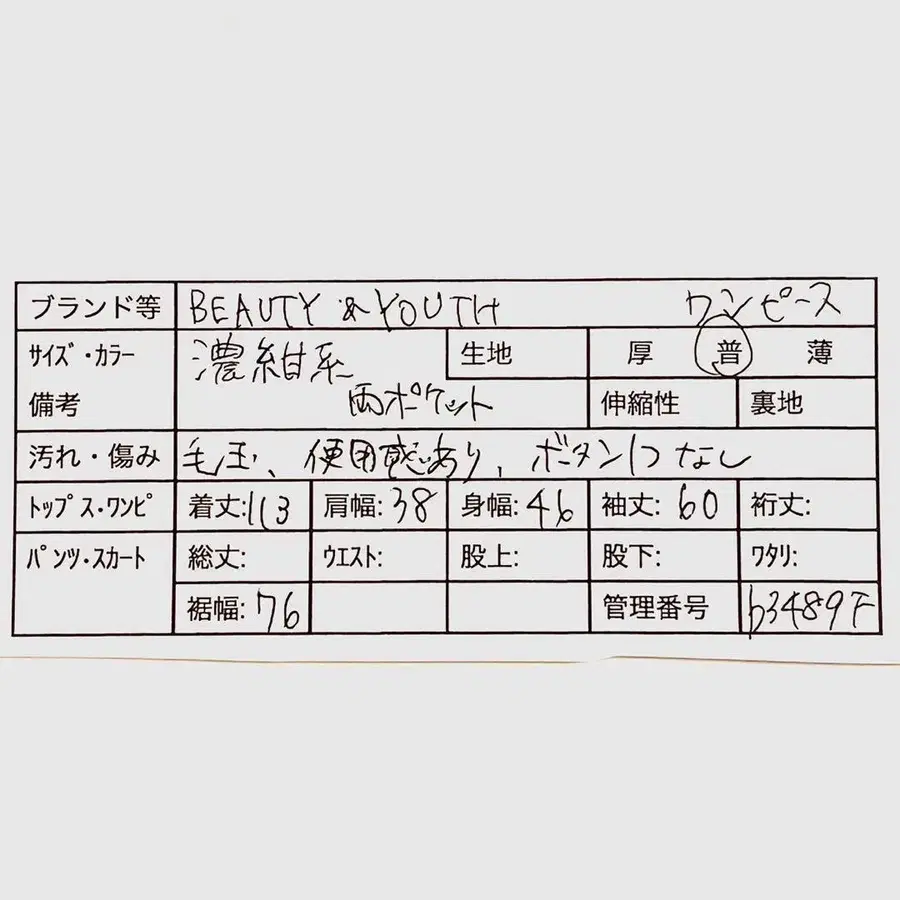 ブランド等 BEAUTY & YOUTH ワンピース
サイズ・カラー 濃紺系 生地 厚 普 薄
備考 両ポケット 伸縮性 裏地
汚れ・傷み 毛玉、使用感あり、ボタン1つなし
トップス・ワンピ 着丈:113 肩幅:38 身幅:46 袖丈:60 裄丈:
パンツ・スカート 総丈: ウエスト: 股上: 股下: ワタリ:
裾幅:76 管理番号 b3489F